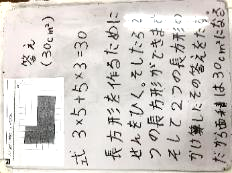 答え
(30cm²)
式 3×5+5×3=30
長方形を作るために
せんをひく。そしたら2
つの長方形ができま
そして2つの長方形の
かけ算したその答えをた
だから面積は30cm²になる